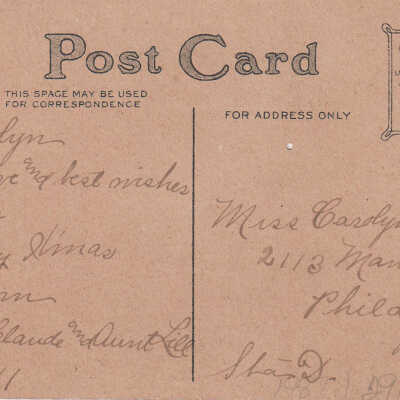 Post Card
THIS SPAGE MAY BE USED
FOR CORRESPONDENCE
FOR ADDRESS ONLY
lyn
ve and best wishes
Xmas
Claude and Aunt Lill
11
Miss Carolyn
2113 Man
Phila
Sta D.